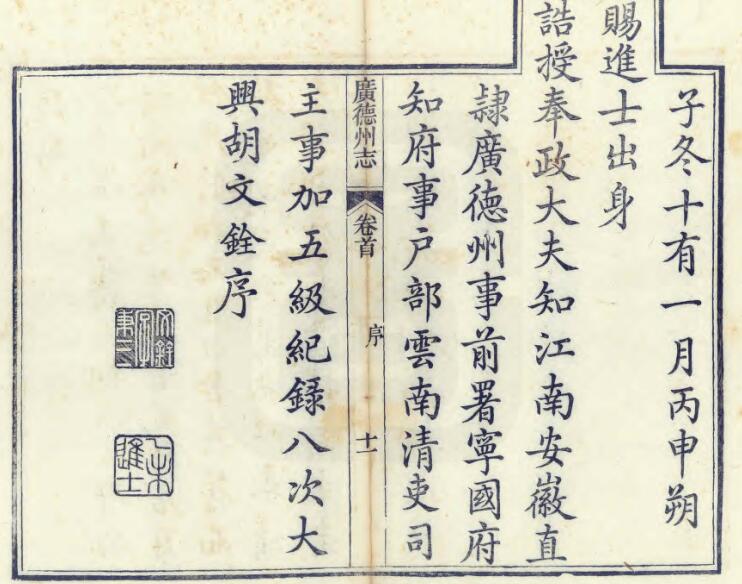 子冬十有一月丙申朔
賜進士出身
誥授奉政大夫知江南安徽直
隸廣德州事前署寧國府
知府事戶部雲南清吏司
廣德州志
卷首
序
十一
主事加五級紀錄八次大
興胡文銓序